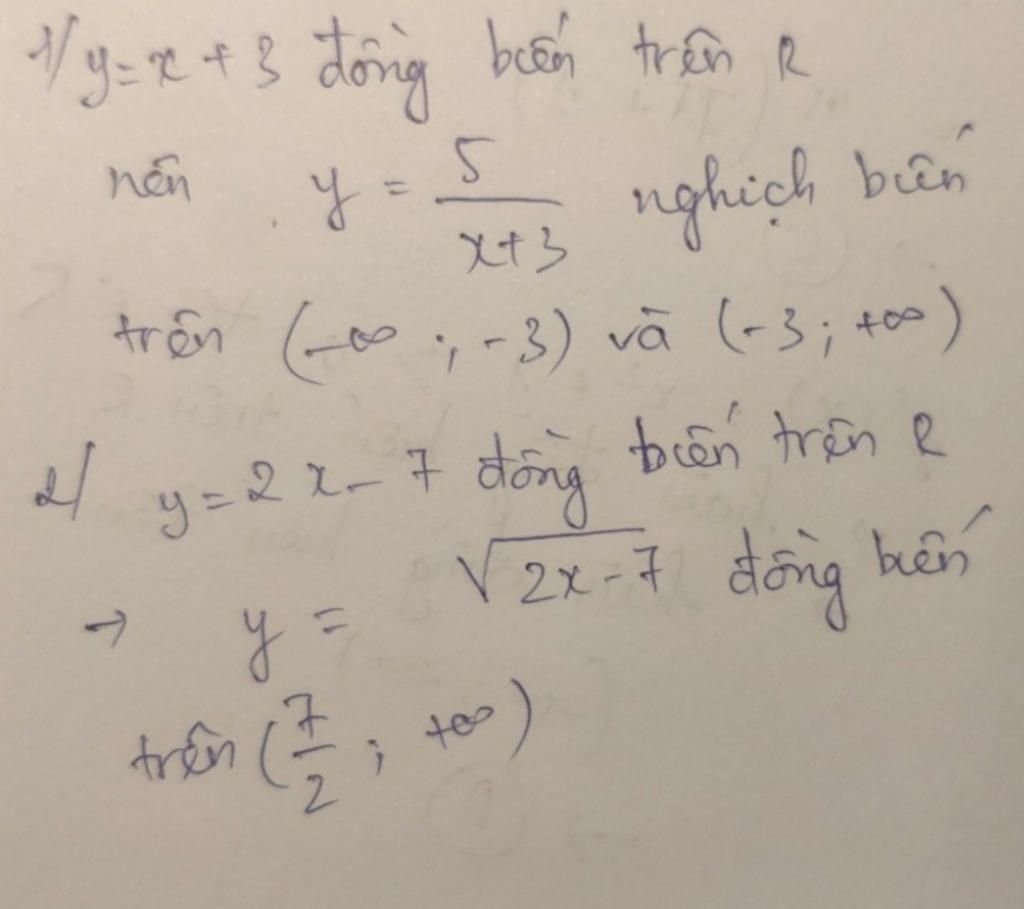 1/ y = x + 3 đồng biến trên R
nên y = 5/(x+3) nghịch biến
trên (-∞ ; -3) và (-3 ; +∞)
2/ y = 2x - 7 đồng biến trên R
→ y = √(2x-7) đồng biến
trên (7/2 ; +∞)